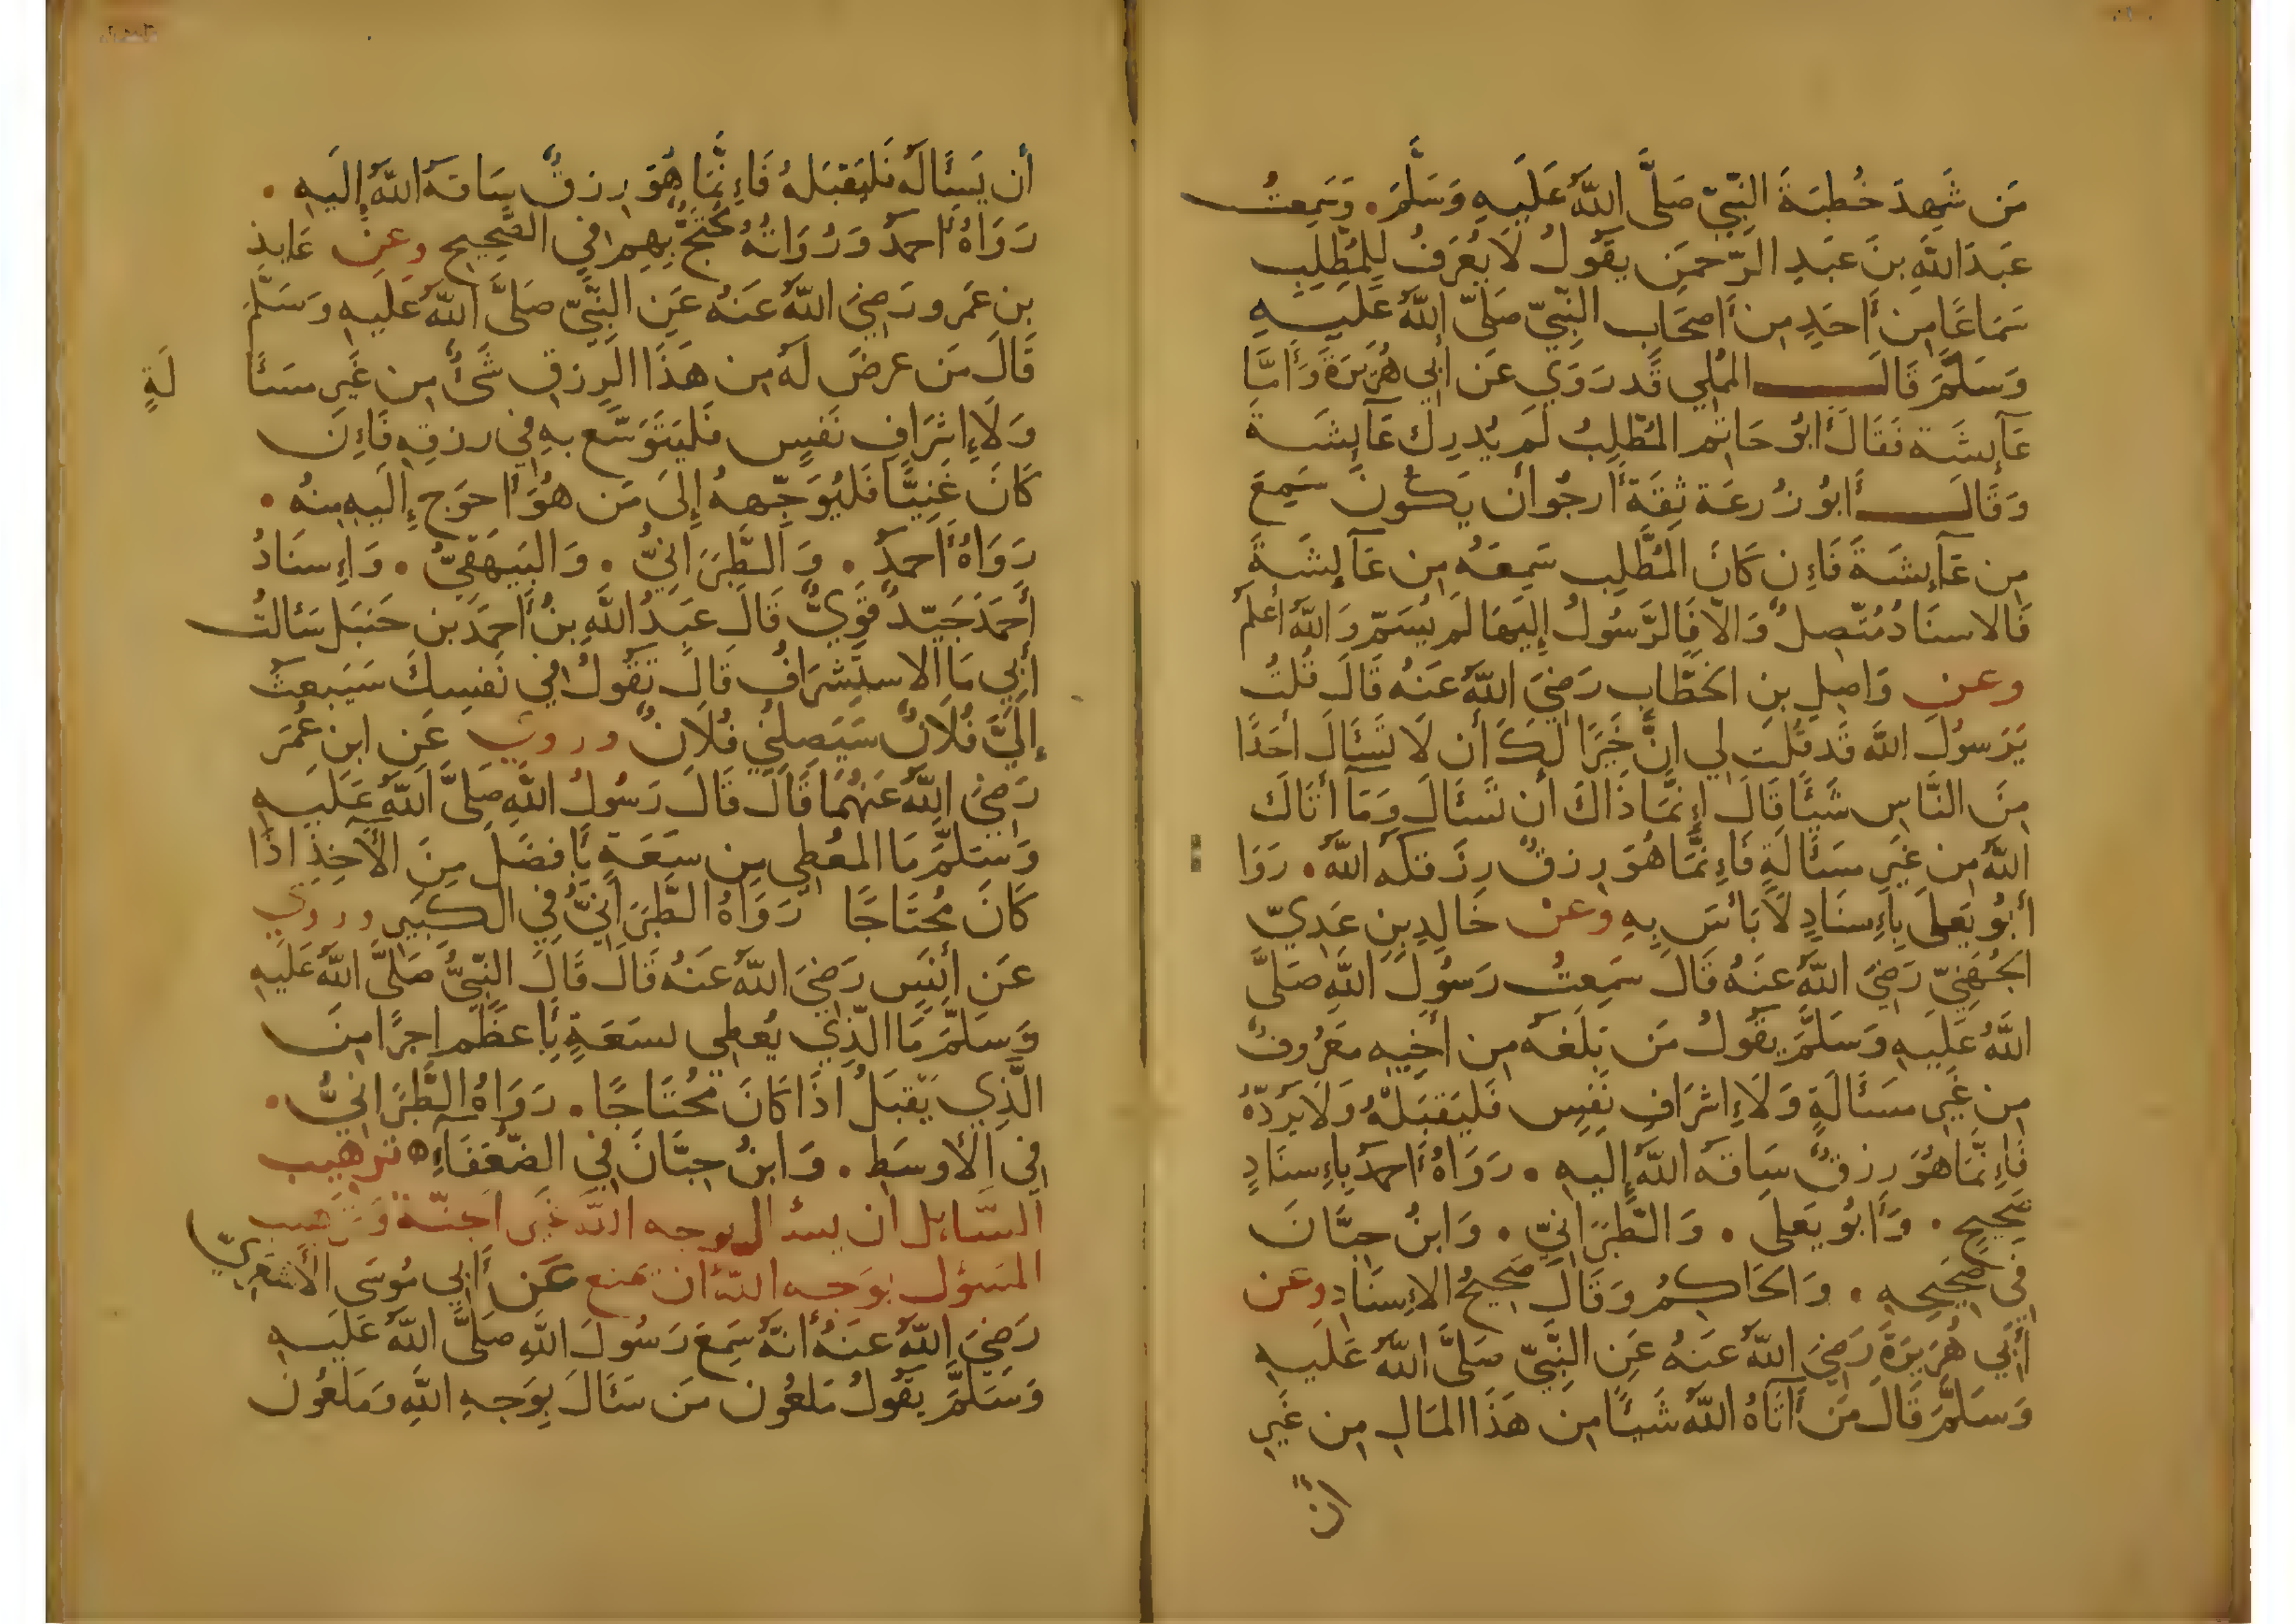 مَن شَهِدَ خُطبَةَ النَّبِيّ صَلَّى اللَّهُ عَلَيهِ وَسَلَّمَ. وَسَمِعتُ
عَبدَ اللَّهِ بنَ عَبدِ الرَّحمَنِ يَقُولُ لَا يُعرَفُ لِلمُطَّلِبِ
سَمَاعًا مِن أَحَدٍ مِن أَصحَابِ النَّبِيّ صَلَّى اللَّهُ عَلَيهِ
وَسَلَّمَ قَالَ المُملِي قَد رَوَي عَن أَبِي هُرَيرَةَ وَأَمَّا
عَآئِشَة فَقَالَ أَبُو حَاتِم المُطَّلِبُ لَم يُدرِك عَآئِشَة
وَقَالَ أَبُو زُرعَة ثِقَة أَرجُو أَن يَكُونَ سَمِعَ
مِن عَآئِشَةَ فَإِن كَانَ المُطَّلِب سَمِعَهُ مِن عَآئِشَةَ
فَالاسنَادُ مُتَّصِلٌ وَالَّا فَالرَّسُولُ إِلَيهَا لَم يُسَمّ وَاللَّهُ أَعلَم
وعن وَاصِلِ بنِ الخَطَّابِ رَضِيَ اللَّهُ عَنهُ قَالَ قُلتُ
يَرَسُولَ اللَّه قَد قُلتَ لِي انَّ خَيرًا لَكَ أَن لَا تَسئَالَ أَحَدًا
مِنَ النَّاسِ شَيئًا قَالَ إِنَّمَا ذَاكَ أَن تَسئَالَ وَمَآ أَتَاكَ
اللَّهُ مِن غَيرِ مَسئَالَةٍ فَإِنَّمَا هُوَ رِزقٌ رِزَقَكَه اللَّهُ. رَوَا
أَبُو يَعلَى بِإِسنَادٍ لَا بَأسَ بِهِ وعن خَالِدِ بنِ عَدِيّ
الجُهَنِيّ رَضِيَ اللَّهُ عَنهُ قَالَ سَمِعتُ رَسُولَ اللَّهِ صَلَّى
اللَّهُ عَلَيهِ وَسَلَّمَ يَقُولُ مَن بَلَغَهُ مِن أَخِيهِ مَعرُوفٌ
مِن غَيرِ مَسئَالَةٍ وَلَا إِشرَافِ نَفسٍ فَليَقبَلهُ وَلَا يَردّهُ
فَإِنَّمَا هُوَ رِزقٌ سَاقَه اللَّهُ إِلَيهِ. رَوَاهُ أَحمَد بِإِسنَادٍ
صَحِيحٍ. وَأَبُو يَعلَى. وَالطَّبَرَانِيّ. وَابنُ حِبَّانَ
فِي صَحِيحِهِ. وَالحَاكِمُ وَقَالَ صَحِيحُ الإِسنَادِ وعن
أَبِي هُرَيرَةَ رَضِيَ اللَّهُ عَنهُ عَنِ النَّبِيّ صَلَّى اللَّهُ عَلَيهِ
وَسَلَّمَ قَالَ مَن أَتَاهُ اللَّهُ شَيئًا مِن هَذَا المَالِ مِن غَيرِ
أَن
أَن يَسئَالَهُ فَليَقبَلهُ فَإِنَّمَا هُوَ رِزقٌ سَاقَهُ اللَّهُ إِلَيهِ.
رَوَاهُ أَحمَد وَرُوَاتُهُ مُحتَجٌّ بِهِم فِي الصَّحِيحِ وعن عَايِذِ
بنِ عَمرو رَضِيَ اللَّهُ عَنهُ عَنِ النَّبِيّ صَلَّى اللَّهُ عَلَيهِ وَسَلَّمَ
قَالَ مَن عرضَ لَهُ مِن هَذَا الرِزقِ شَيٌ مِن غَيرِ مسَئَا
لَةٍ
وَلَا إِشرَافِ نَفسٍ فَليَتَوَسَّع بِهِ فِي رِزقِهِ فَإِن
كَانَ غَنِيًّا فَليُوَجِّههُ إِلَى مَن هُوَ أَحوَج إِلَيهِ مِنهُ.
رَوَاهُ أَحمَد. وَالطَّبَرَانِيُّ. وَالبَيهَقِيُّ. وَإِسنَادُ
أَحمَدَ جَيّدٌ قَوِيٌّ قَالَ عَبدُ اللَّهِ بنُ أَحمَدَ بنِ حَنبَل سَئَالتُ
أَبِي مَا الاستِشرَافُ قَالَ تَقُولُ فِي نَفسِكَ سَيَبعَثُ
إِلَيَّ فُلَانٌ سَيَصِلُنِي فُلَانٌ وروي عَنِ ابنِ عُمَرَ
رَضِيَ اللَّهُ عَنهُمَا قَالَ قَالَ رَسُولُ اللَّهِ صَلَّى اللَّهُ عَلَيهِ
وَسَلَّمَ مَا المُعطِي مِن سَعَةٍ بِأَفضَلَ مِنَ الأَخِذِ اذَا
كَانَ مُحتَاجًا رَوَاهُ الطَّبَرَانِيُّ فِي الكَبِيرِ وروي
عَن أَنَسٍ رَضِيَ اللَّهُ عَنهُ قَالَ قَالَ النَّبِيُّ صَلَّى اللَّهُ عَلَيهِ
وَسَلَّمَ مَا الَّذِي يُعطِي لسَعَةٍ بِأَعظَم اجرًا مِنَ
الَّذِي يَقبَلُ اذَا كَانَ مُحتَاجًا. رَوَاهُ الطَّبَرَانِيُّ.
فِي الأَوسَطِ. وَابنُ حِبَّانَ فِي الضُّعَفَآءِ ه ترهيب
السَّايل ان يسئال بوجه اللَّه غير الجنّة وترهيب
المسؤل بوجه اللَّه ان يمنع عَن أَبِي مُوسَى الأَشعَرِيّ
رَضِيَ اللَّهُ عَنهُ أَنَّهُ سَمِعَ رَسُولَ اللَّهِ صَلَّى اللَّهُ عَلَيهِ
وَسَلَّمَ يَقُولُ مَلعُون مَن سَئَالَ بِوَجهِ اللَّهِ وَمَلعُونَ